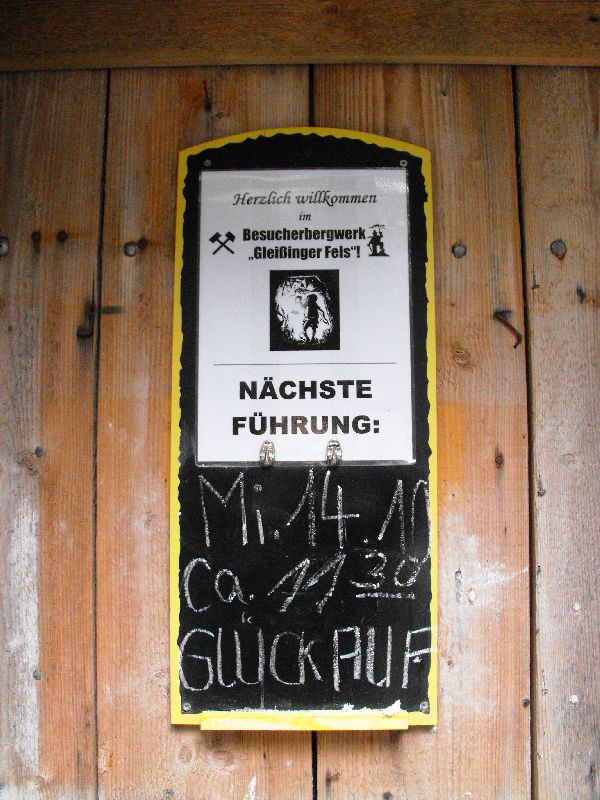 Herzlich willkommen
im
Besucherbergwerk
„Gleißinger Fels“!
NÄCHSTE
FÜHRUNG:
Mi. 14.10
Ca. 11 30
GLÜCK AUF